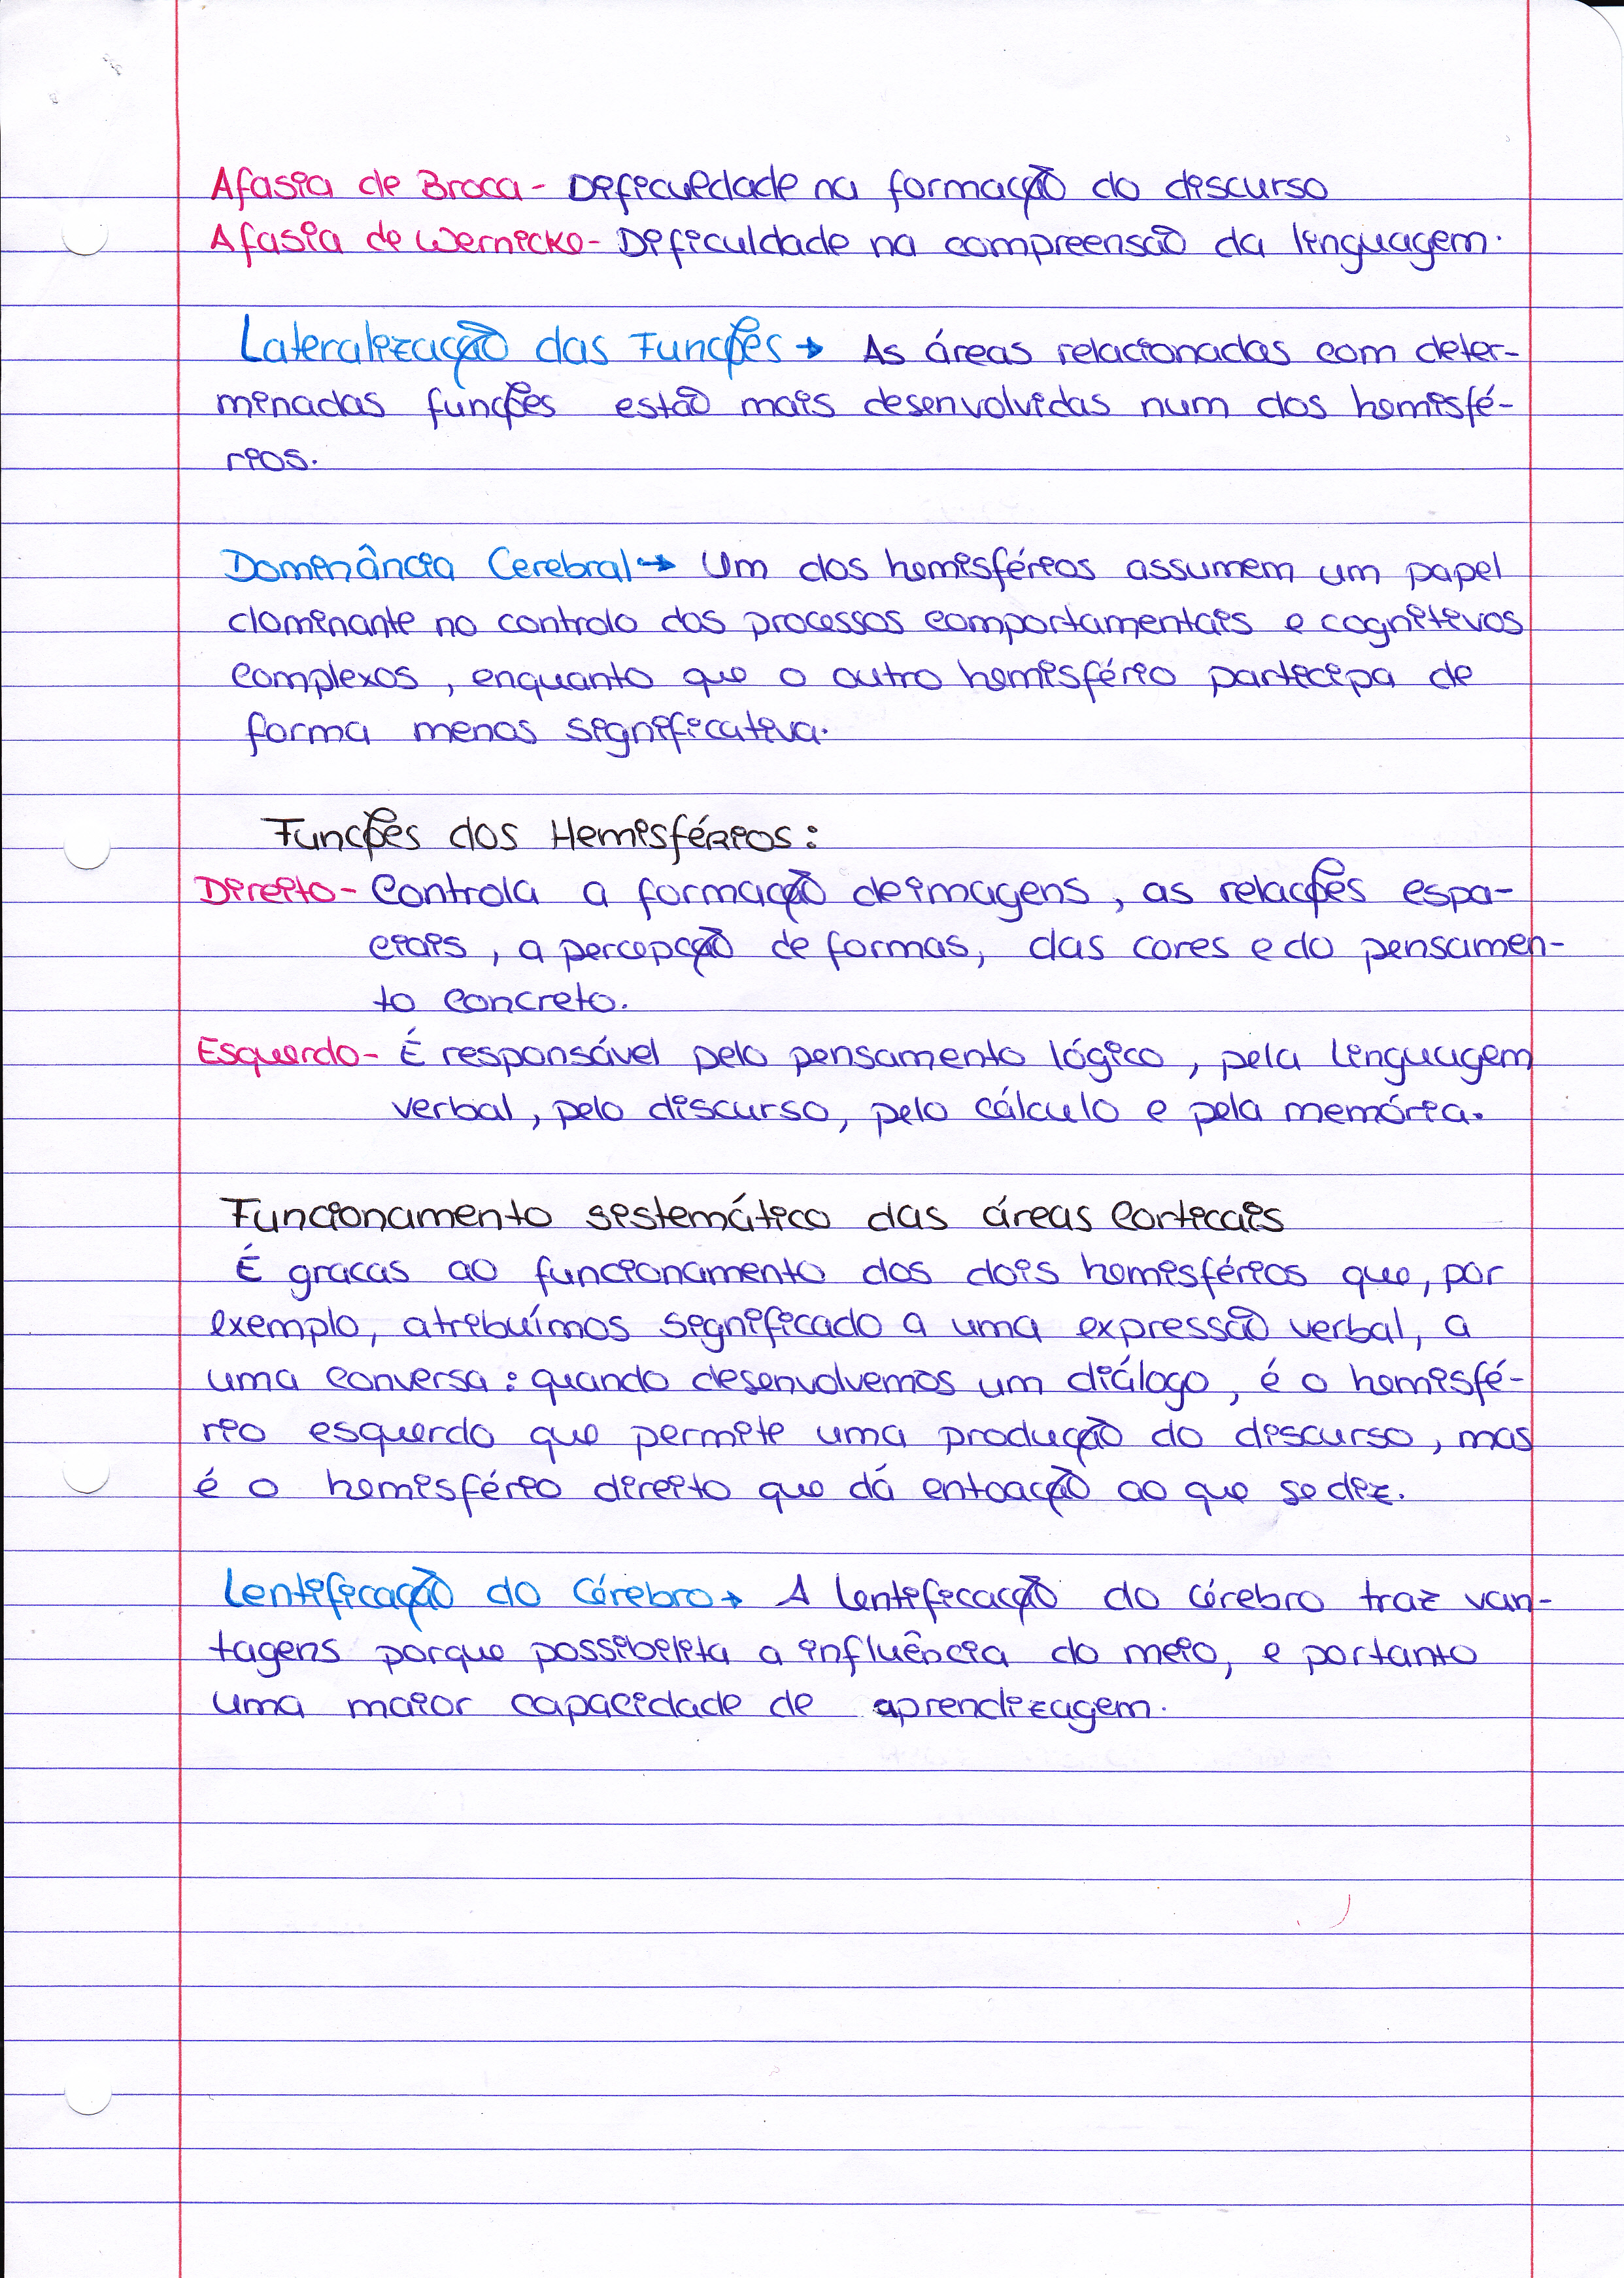 Afasia de Broca - Dificuldade na formação do discurso
Afasia de Wernicke - Dificuldade na compreensão da linguagem.
Lateralização das Funções → As áreas relacionadas com deter-
minadas funções estão mais desenvolvidas num dos hemisfé-
rios.
Dominância Cerebral → Um dos hemisférios assumem um papel
dominante no controlo dos processos comportamentais e cognitivos
complexos, enquanto que o outro hemisfério participa de
forma menos significativa.
Funções dos Hemisférios:
Direito - Controla a formação de imagens, as relações espa-
ciais, a percepção de formas, das cores e do pensamen-
to concreto.
Esquerdo - É responsável pelo pensamento lógico, pela linguagem
verbal, pelo discurso, pelo cálculo e pela memória.
Funcionamento sistemático das áreas corticais
É gracas ao funcionamento dos dois hemisférios que, por
exemplo, atribuímos significado a uma expressão verbal, a
uma conversa: quando desenvolvemos um diálogo, é o hemisfé-
rio esquerdo que permite uma produção do discurso, mas
é o hemisfério direito que dá entoação ao que se diz.
Lentificação do Cérebro → A lentificação do cérebro traz van-
tagens porque possibilita a influência do meio, e portanto
uma maior capacidade de aprendizagem.